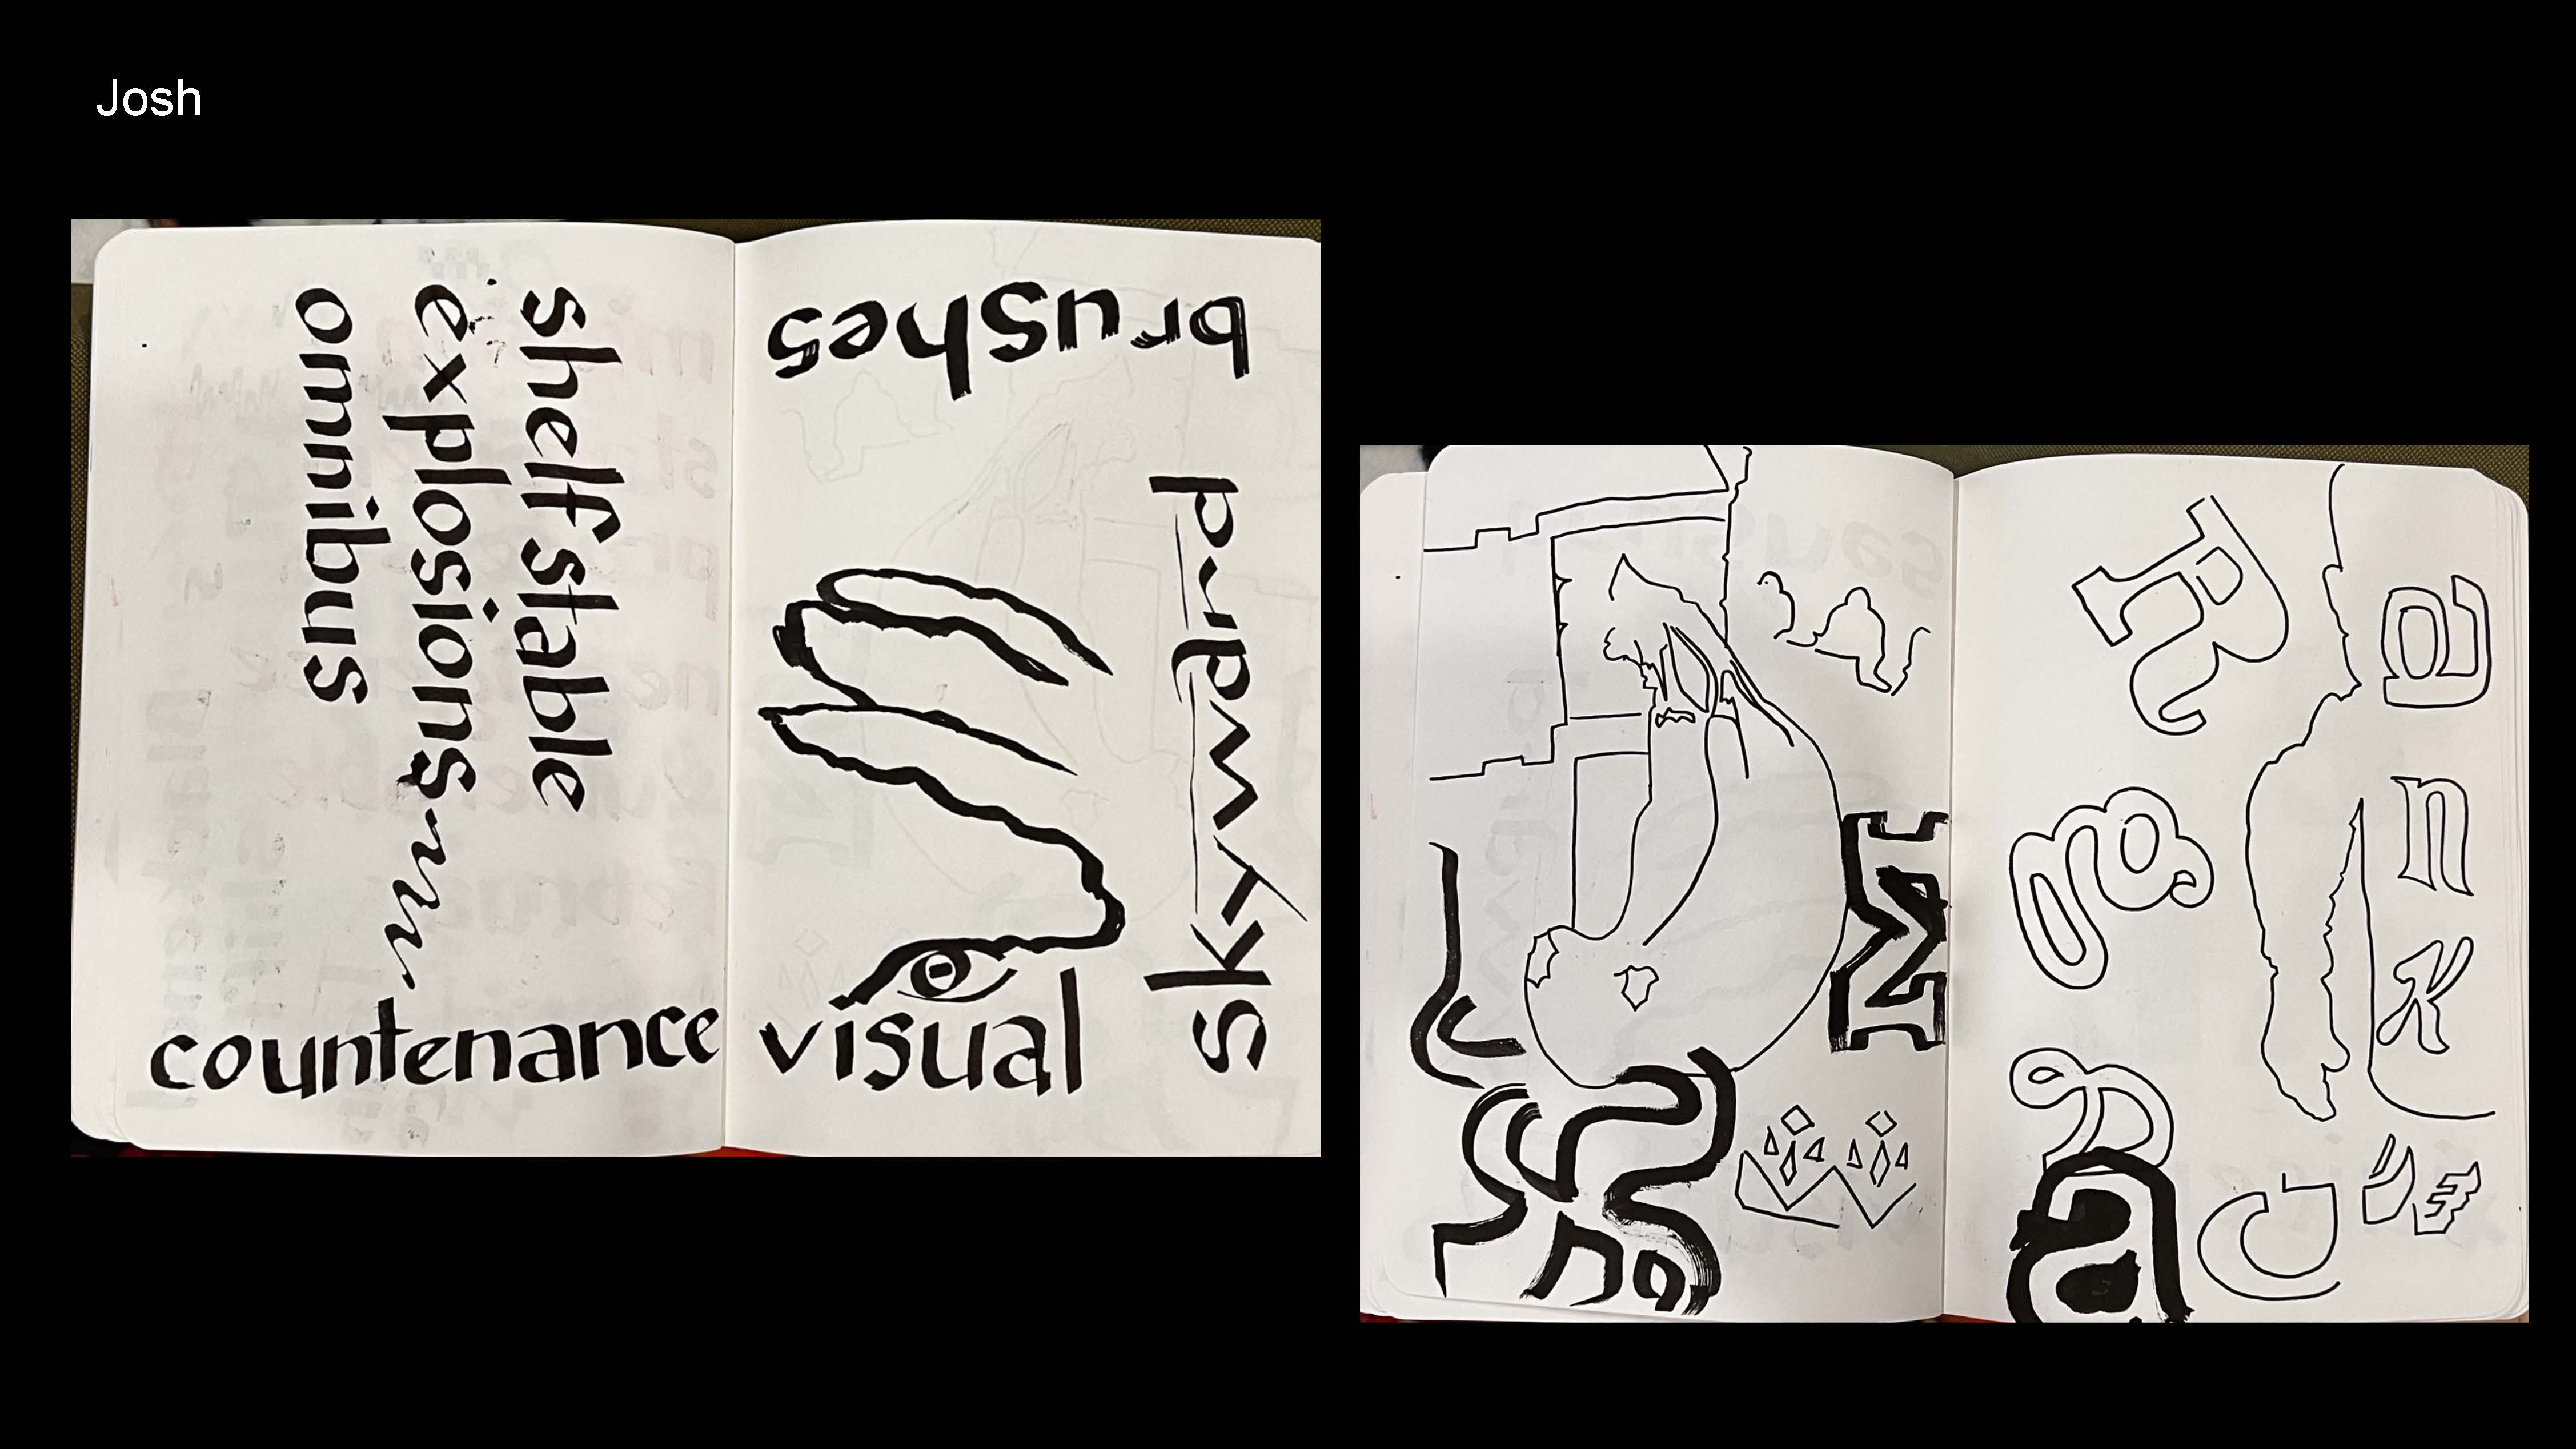 Josh
shelf stable
explosions
omnibus
countenance
brushes
skyward
visual
R
a
g
n
k
a